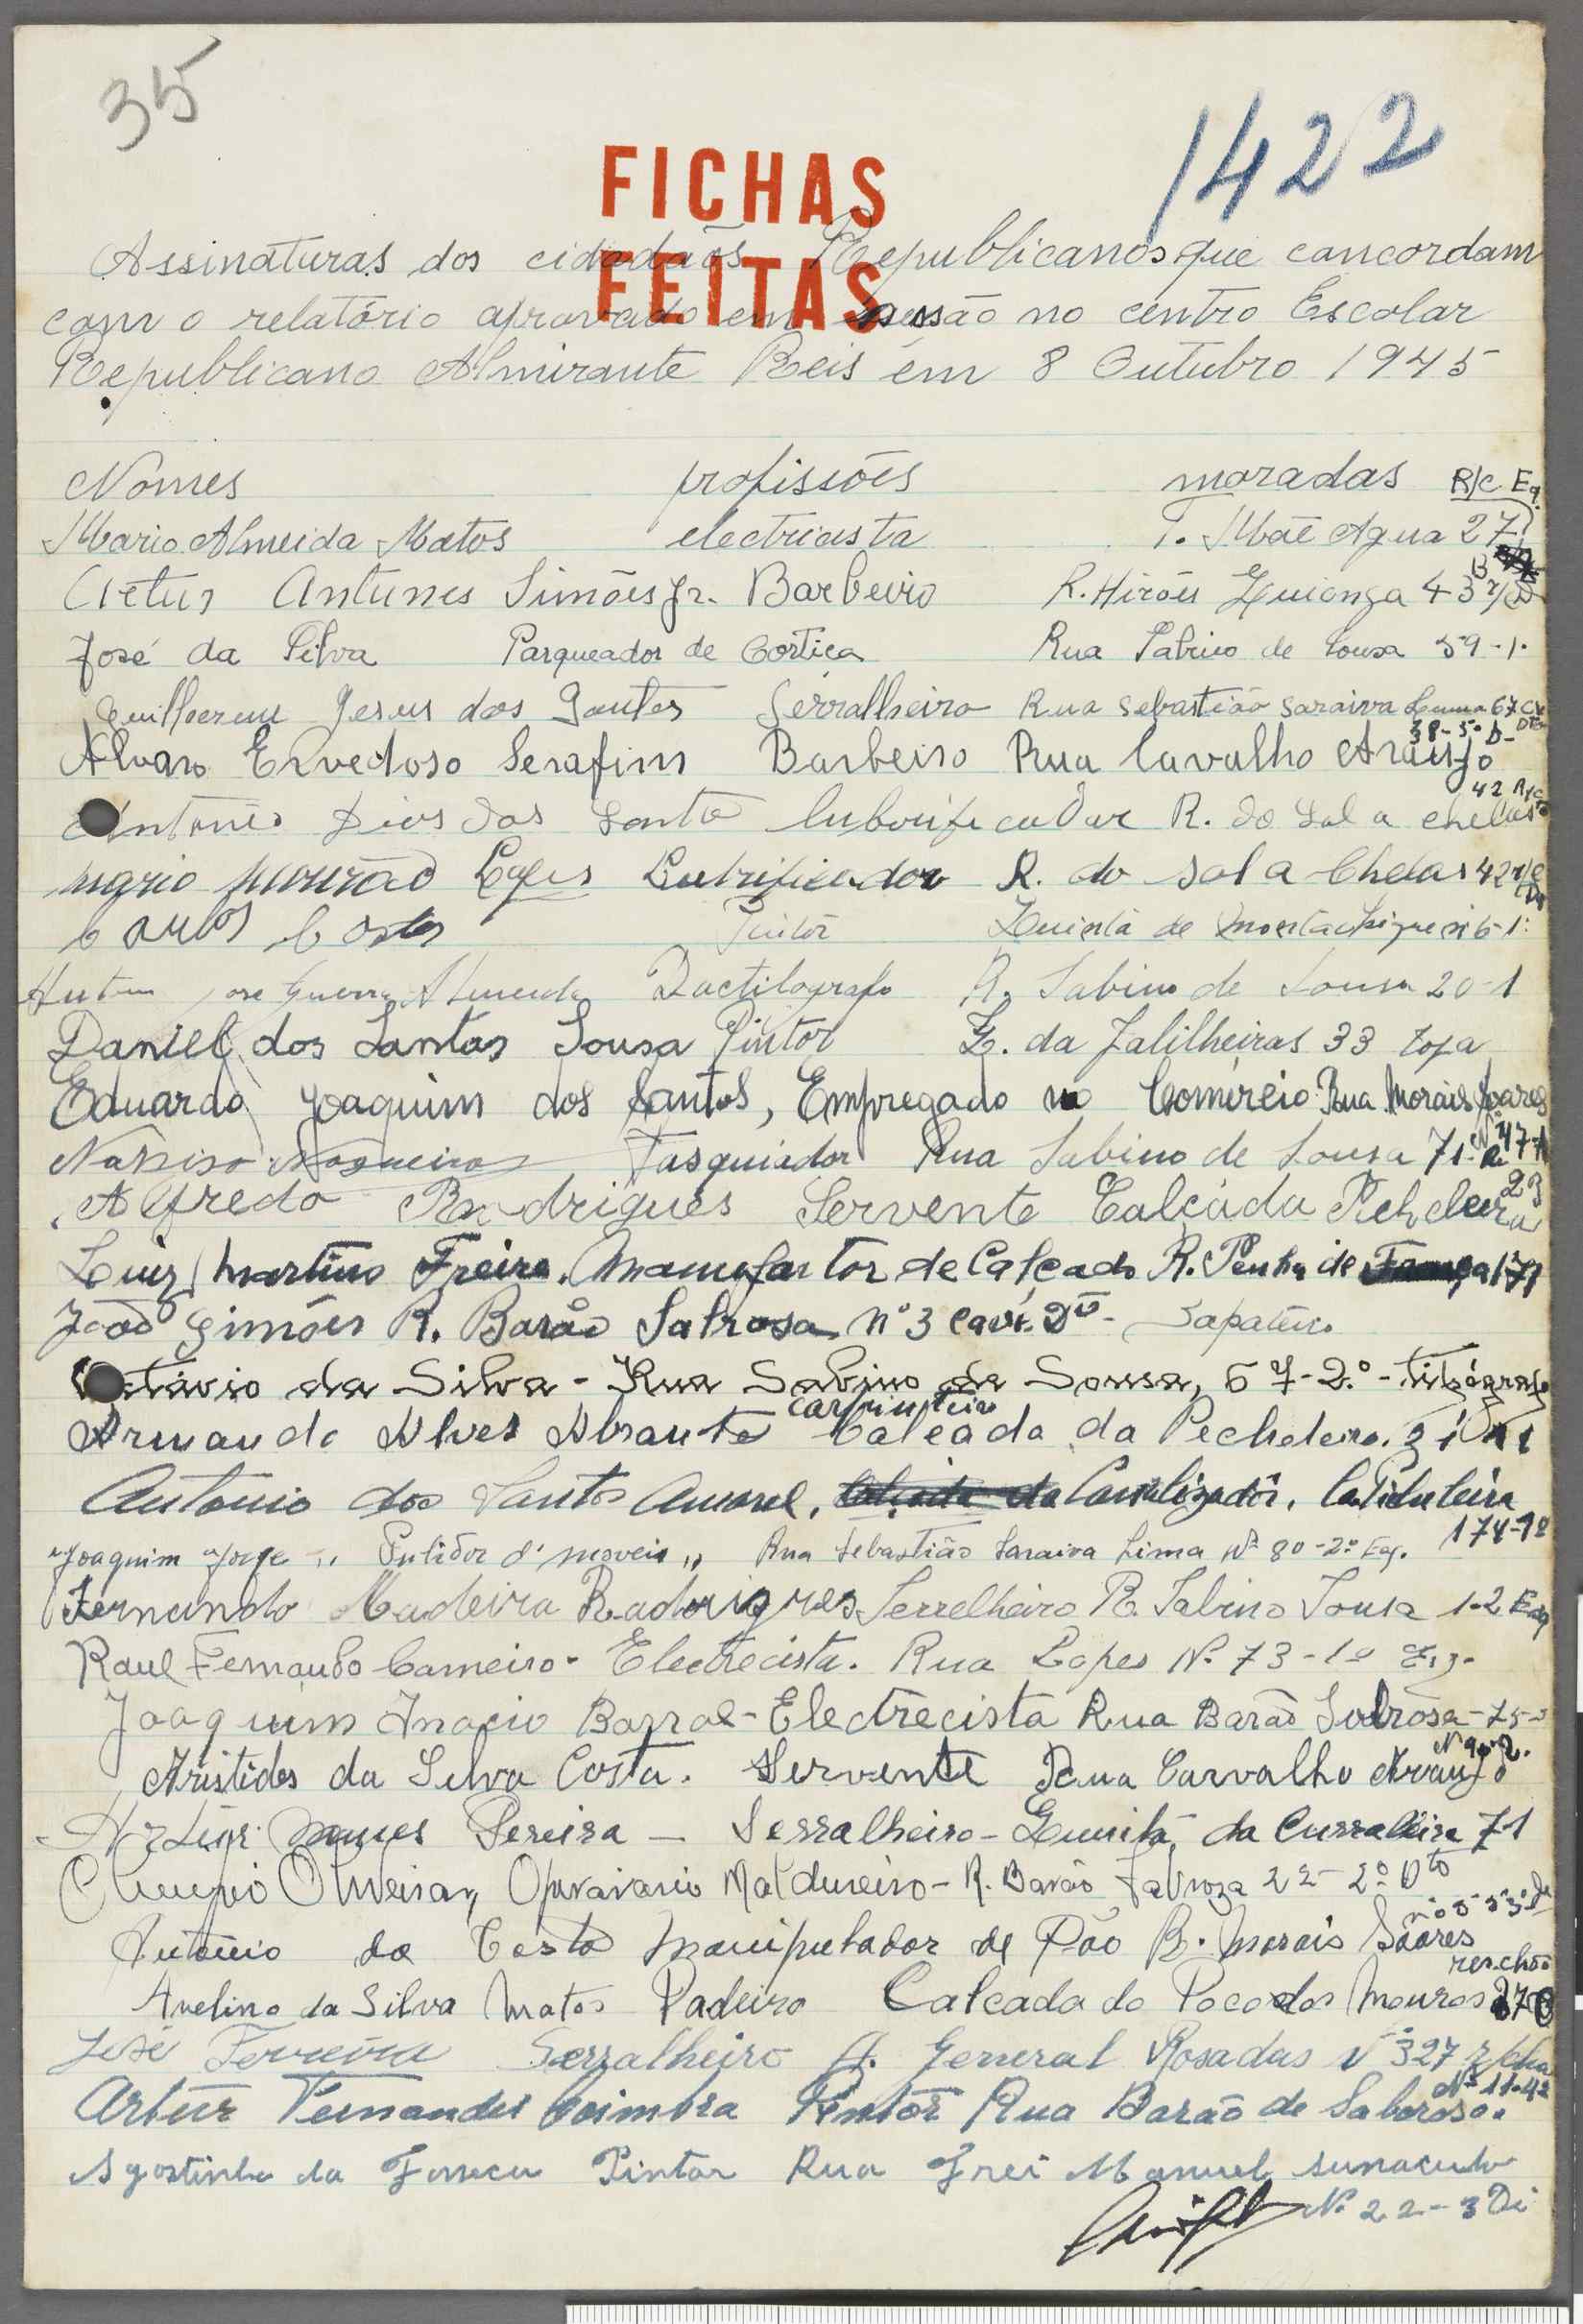 35
1422
FICHAS
FEITAS
Assinaturas dos cidadãos Republicanos que concordam
com o relatório aprovado em sessão no centro Escolar
Republicano Almirante Reis em 8 Outubro 1945
Nomes profissões moradas R/C Eq.
Mario Almeida Matos electricista T. Mãe Agua 27
Antunes Simões Jr. Barbeiro R. Hiróis Quionga 43 B
José da Silva Parqueador de Cortiça Rua Sabino de Sousa 59-1.
Guilherme Jesus dos Santos Serralheiro Rua Sebastião Saraiva Lima 67
38-5º D-
Alvaro Ervedoso Serafim Barbeiro Rua Carvalho Araujo
42 R/c
António Dios dos Santos luborificador R. do Sol a chelas
mario mourão Lopes Lubrificador R. do Sol a Chelas 42 r/c
Carlos Costa Pintor Quinta de 6-1
José Guerra Almeida Dactilografo R. Sabino de Sousa 20-1
Daniel dos Santos Sousa Pintor C. da 33 loja
Eduardo Joaquim dos Santos, Empregado no Comércio Rua Morais Soares
Nº 47-A
Narciso Nogueira Tasquiador Rua Sabino de Sousa 71-R
23
Alfredo Rodrigues Servente Calçada Picheleira
Luiz Martins Freire. Manufactor de Calçado R. Penha de França 171
João Simões R. Barão Sabrosa nº 3 cave Dtº - Sapateiro
Otávio da Silva - Rua Sabino de Sousa, 67-2.º - tipógrafo
carpinteiro
Armando Alves Abrante Calçada da Picheleira. 31
Antonio dos Santos Amaral, Canalizadôr. Ca Picheleira
174-1º
Joaquim Jorge ,, Pulidor d' moveis ,, Rua Sebastião Saraiva Lima Nº 80-2º Eq.
Fernando Madeira Rodrigres Serrelheiro R. Sabino Sousa 1-2 Esq
Raul Fernando Carneiro - Electrecista. Rua Lopes Nº 73-1º Esq.
Joaquim Inacio Barral - Electrecista Rua Barão Sabrosa - 75-
Nº 90-2.
Aristides da Silva Costa. Servente Rua Carvalho Araujo
Artur Nunes Pereira - Serralheiro - Quinta da Curraleira 71
Olimpio Oliveira, Operarario Maldureiro - R. Barão Sabroza 22-2º Dto
Antonio da Costa manipulador de Pão R. Morais Soares
res.chão
Avelino da Silva Matos Padeiro Calcada do Poco dos Mouros
José Ferreira Serralheiro A. General Rosadas Nº 327 r/chão
Nº 11-4º
Artur Fernandes Coimbra Pintor Rua Barão de Saborosa.
Agostinho da Fonseca Pintor Rua Frei Manuel sunaculo
Nº 22-3 Di